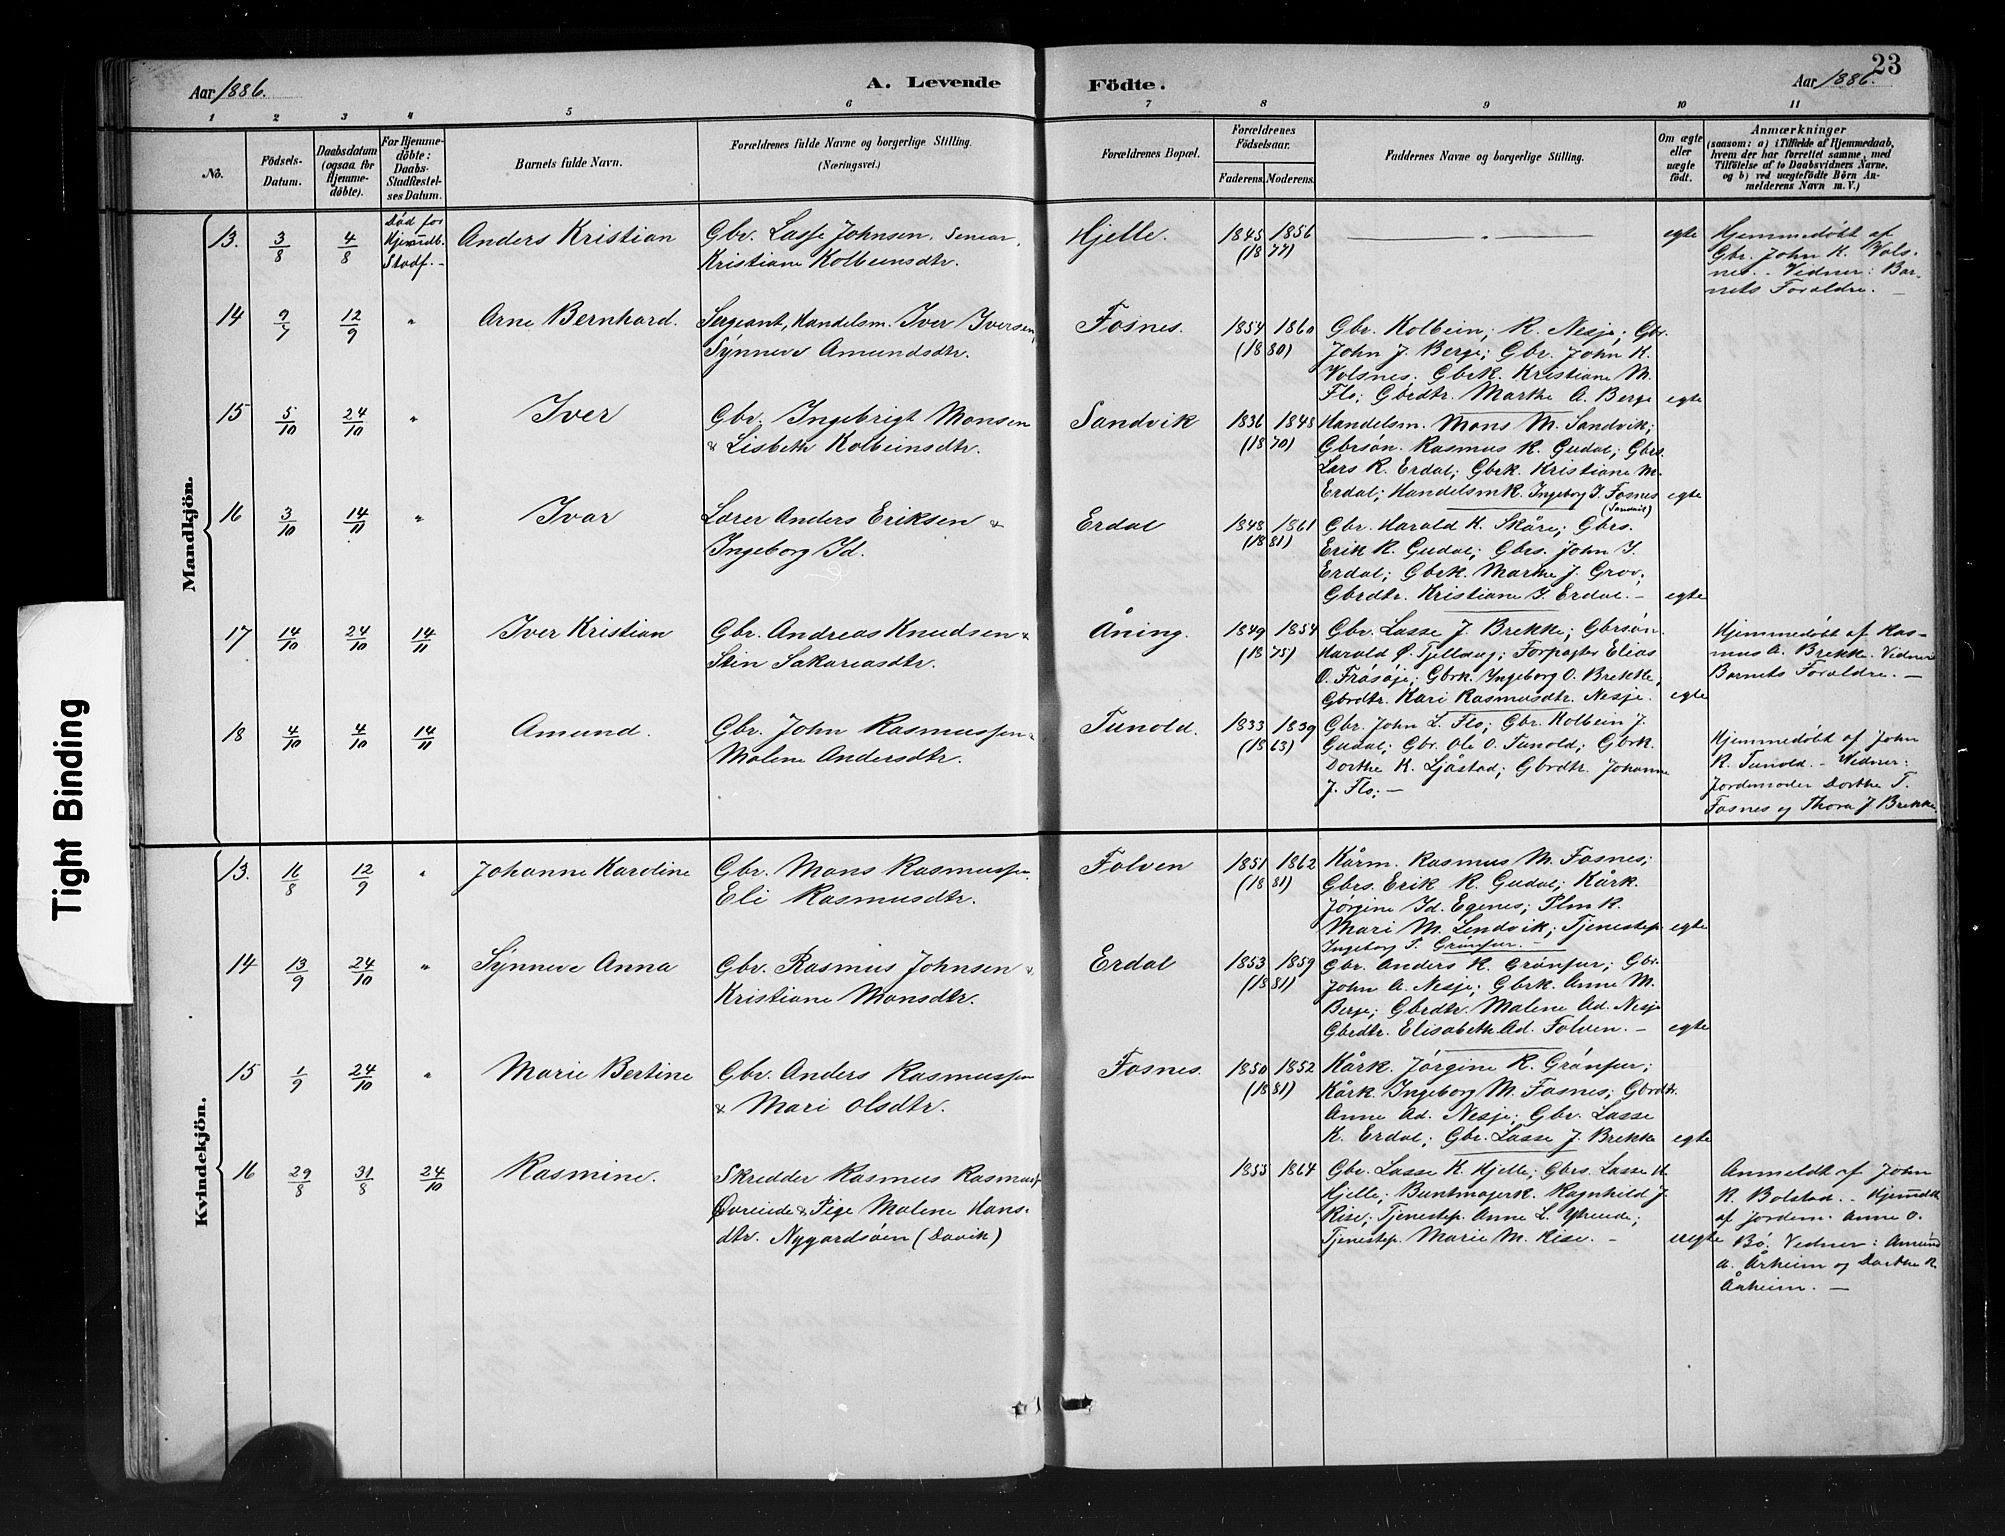 Aar 1886.
A. Levende
Födte.
Aar 1886.
23
1 2 3 4 5 6 7 8 9 10 11
No.
Födsels-
Datum.
Daabsdatum
(ogsaa for
Hjemme-
döbte).
For Hjemme-
döbte:
Daabs-
Stadfæstel-
ses Datum.
Barnets fulde Navn.
Forældrenes fulde Navne og borgerlige Stilling.
(Næringsvei.)
Forældrenes Bopæl.
Forældrenes
Födselsaar.
Faderens. Moderens.
Faddernes Navne og borgerlige Stilling.
Om ægte
eller
uægte
födt.
Anmærkninger
(saasom: a) i Tilfælde af Hjemmedaab,
hvem der har forrettet samme, med
Tilföielse af to Daabsvidners Navne,
og b) ved uægtefödte Börn An-
melderens Navn m. V.)
Mandkjön.
13. 3/8 4/8 Död for
Hjemdb.
Stadf. -
Anders Kristian
Gbr. Lasse Johnsen, Senior,
Kristiane Kolbeinsdtr.
Hjelle.
1845 1856
(18 77)
egte
Hjemmedøbt af
Gbr. John K. Vols-
nes. - Vidner: Bar-
nets Foraldre. -
14 9/7 12/9 "
Arne Bernhard.
Sergeant, Handelsm. Iver Iversen,
Synneve Amundsdtr.
Fosnes.
1854 1860
(18 80)
Gbr. Kolbein, R. Nesje; Gbr.
John J. Berge; Gbr. John K.
Volsnes. Gbrk. Kristiane M.
Flo; Gbrdtr. Marthe A. Berge egte
15 5/10 24/10 "
Iver
Gbr. Ingebrigt Monsen
& Lisbeth Kolbeinsdtr.
Sandvik
1836 1848
(18 70)
Handelsm. Mons M. Sandvik;
Gbrsøn. Rasmus R. Gudal; Gbrs.
Lars R. Erdal; Gbrk. Kristiane M.
Erdal; HandelsmK. Ingeborg I. Fosnes egte
(Sandvik)
16 3/10 14/11 "
Ivar
Lærer Anders Eriksen &
Ingeborg Id.
Erdal
1848 1861
(18 81)
Gbr. Harald K. Skåre; Gbrs.
Erik R. Gudal; Gbrs. John I.
Erdal; Gbrk. Marthe J. Grov;
Gbrdtr. Kristiane I. Erdal. - egte
17 14/10 24/10 14/11
Iver Kristian
Gbr. Andreas Knudsen &
Stin Sakariasdtr.
Åning.
1849 1854
(18 75)
Gbr. Lasse J. Brekke; Gbrsøn.
Harald Ø. Tjellaug; Forpagter Elias
O. Frøsøje; Gbrk. Ingeborg O. Brekke,
Gbrdtr. Kari Rasmusdtr. Nesje. egte
Hjemmedøbt af Ras-
mus A. Brekke. Vidner
Barnets Foraldre. -
18 4/10 4/10 14/11
Amund.
Gbr. John Rasmussen &
Malene Andersdtr.
Tunold.
1833 1839
(18 63)
Gbr. John L. Flo; Gbr. Kolbein J.
Gudal; Gbr. Ole O. Tunold; Gbrk.
Dorthe K. Ljåstad; Gbrdtr. Johanne
J. Flo; -
Hjemmedøbt af John
R. Tunold. - Vidner:
Jordemoder Dorthe T.
Fosnes og Thora J. Brekke.
Kvindekjön.
13. 16/8 12/9 "
Johanne Karoline
Gbr. Mons Rasmussen
Eli Rasmusdtr.
Folven
1851 1862
(18 81)
Kårm. Rasmus M. Fosnes;
Gbrs. Erik R. Gudal; Kårk.
Jørgine Id. Egenes; PlmK.
Mari M. Lindvik; Tjenestep. egte
Ingeborg T. Grønfur. -
14 13/9 24/10 "
Synneve Anna
Gbr. Rasmus Johnsen &
Kristiane Monsdtr.
Erdal
1853 1859
(18 81)
Gbr. Anders R. Grønfur; Gbr.
John A. Nesje; Gbrk. Anne M.
Berge; Gbrdtr. Malene Ad. Nesje
Gbrdtr. Elisabeth Ad. Folven. - egte
15 1/9 24/10 "
Marie Bertine
Gbr. Anders Rasmussen
& Mari Olsdtr.
Fosnes.
1850 1852
(18 81)
Kårk. Jørgine R. Grønfur;
Kårk. Ingeborg M. Fosnes; Gbrdtr.
Anne Ad. Nesje; Gbr. Lasse
K. Erdal; Gbr. Lasse J. Brekke egte
16 29/8 31/8 24/10
Rasmine.
Skredder Rasmus Rasmuss.
Øvreeide & Pige Malene Hans-
dtr. Nygardsøen (Davik)
1853 1864
Gbr. Lasse K. Hjelle; Gbrs. Lasse K.
Hjelle; Buntmagerk. Ragnhild J.
Rise; Tjenestep. Anne L. Ytreeide;
Tjenestep. Marie M. Rise. - uegte
Anmeldt af John
R. Bolstad. - Hjemdbt
af Jordem. Anne O.
Bø. Vidner: Amund
A. Årheim og Dorthe R.
Årheim. -
Tight Binding